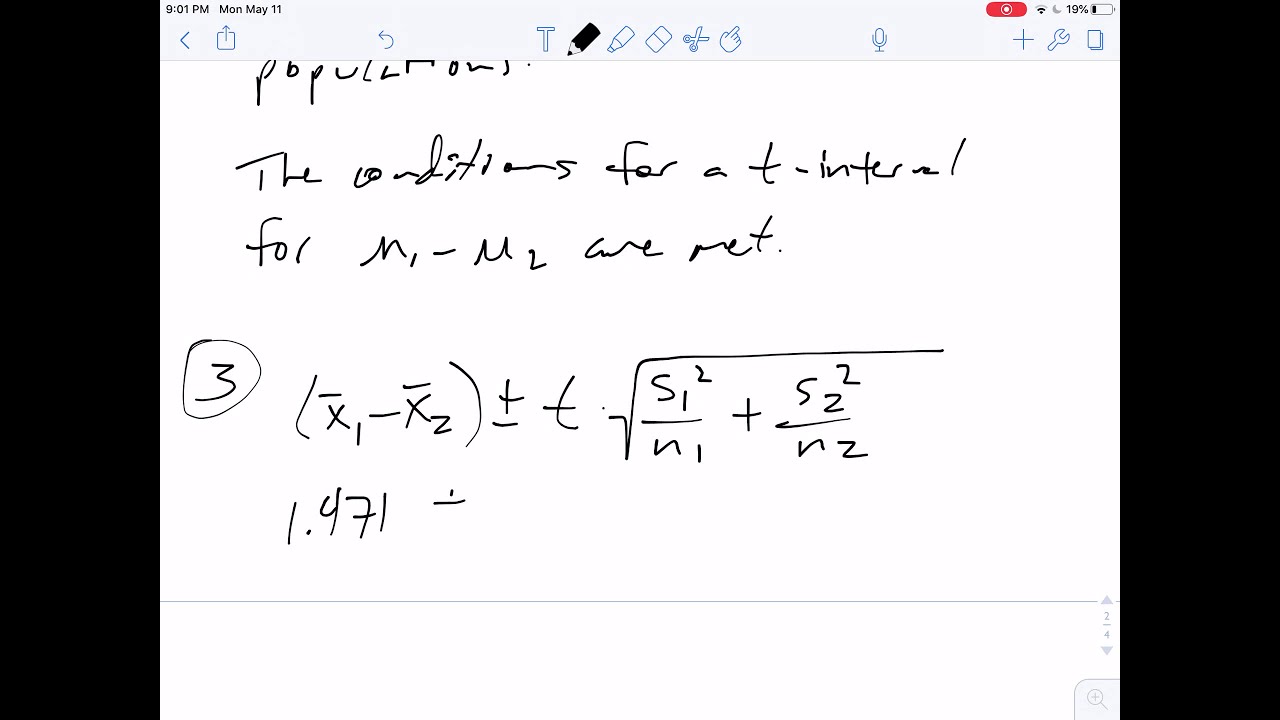 9:01 PM Mon May 11
19%
T
populations.
The conditions for a t-interval
for μ₁ - μ₂ are met.
3
(x̄₁ - x̄₂) ± t · √(s₁²/n₁ + s₂²/n₂)
1.471 ±
2
4